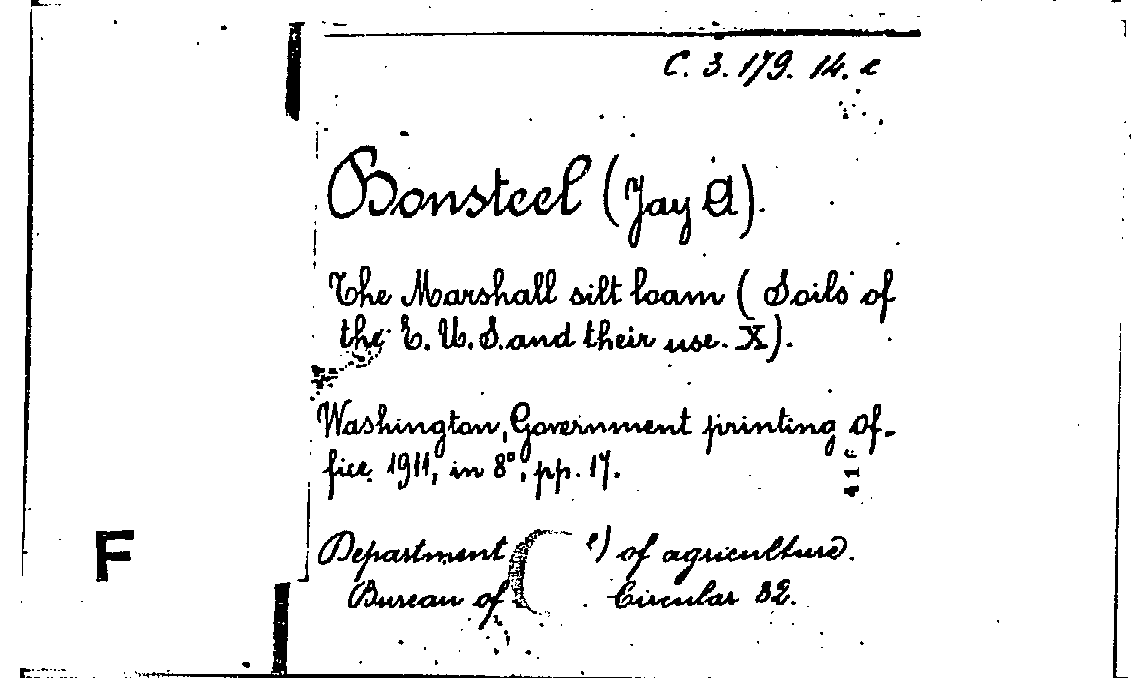 C. 3. 179. 14. c
Bonsteel (Jay A).
The Marshall silt loam (Soils of
the E. U. S. and their use. X).
Washington, Government printing of-
fice, 1911, in 8°, pp. 17.
Department of agriculture.
Bureau of Circular 32.
F